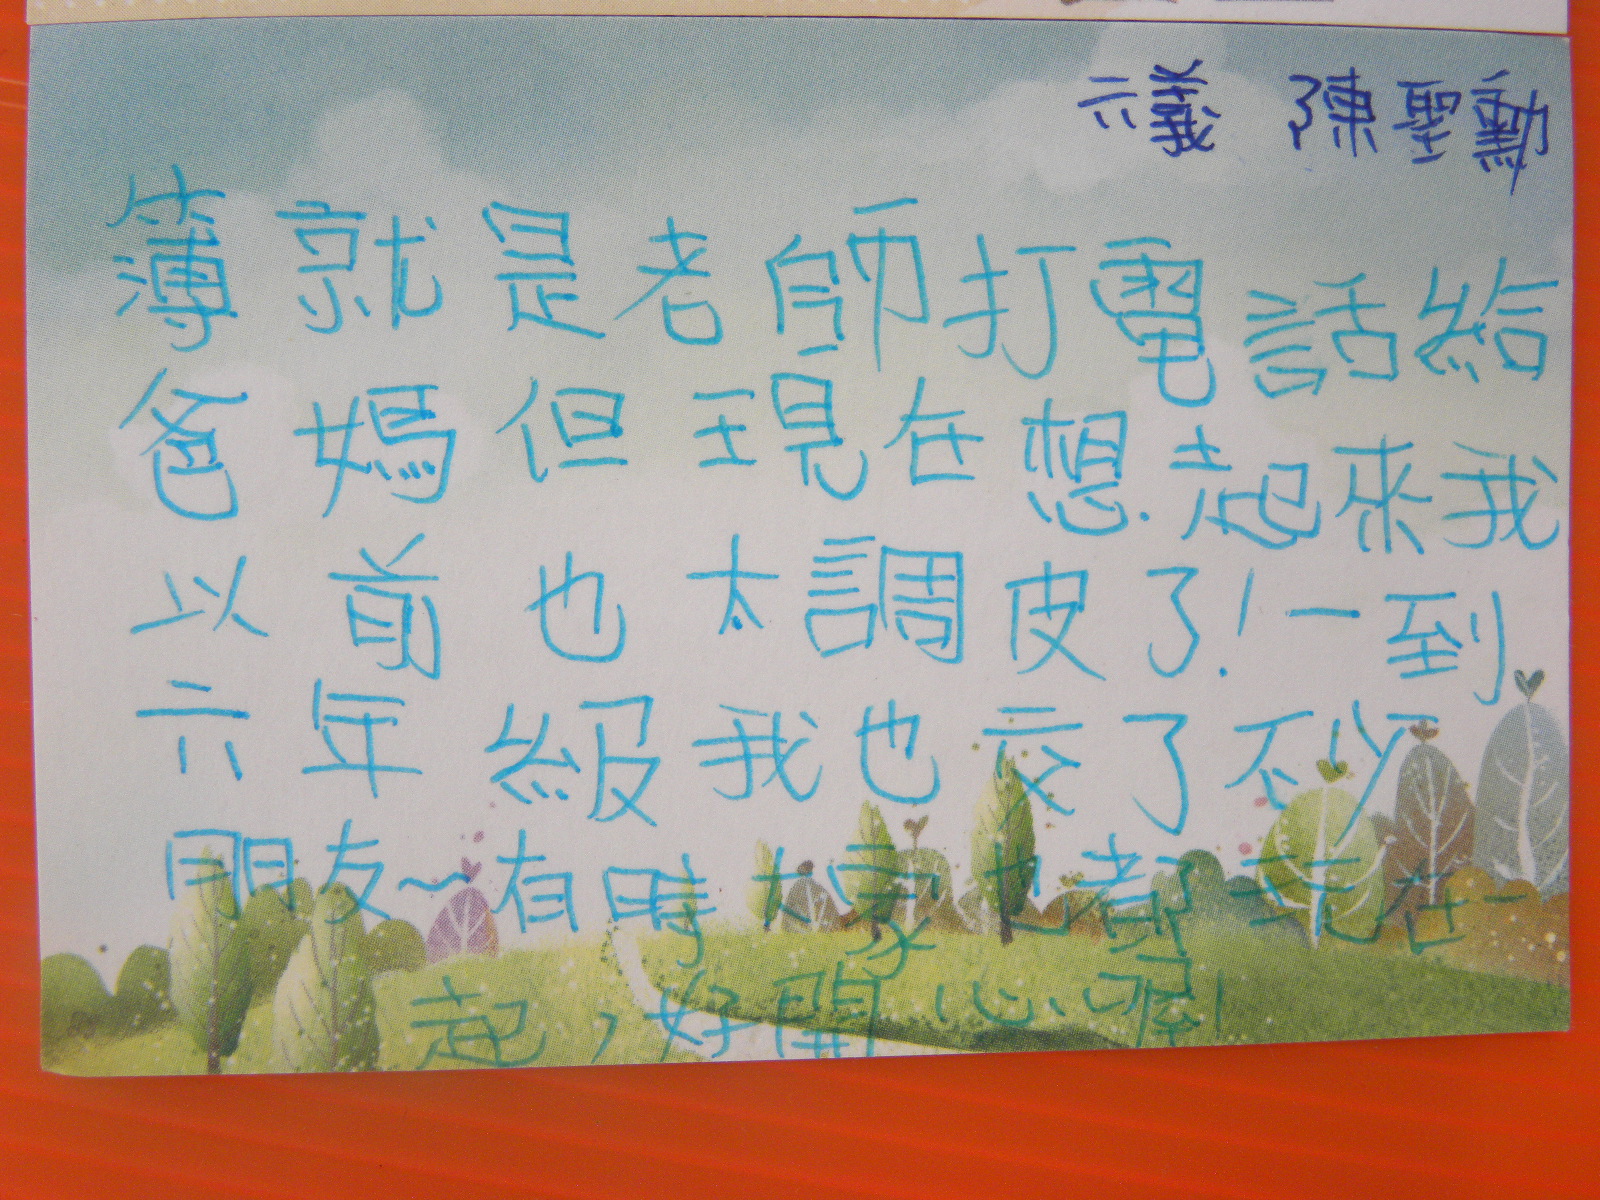 六義 陳聖勳
簿就是老師打電話給
爸媽但現在想起來我
以前也太調皮了!一到
六年級我也交了不少
朋友~有時大家也都玩在一
起,好開心喔!